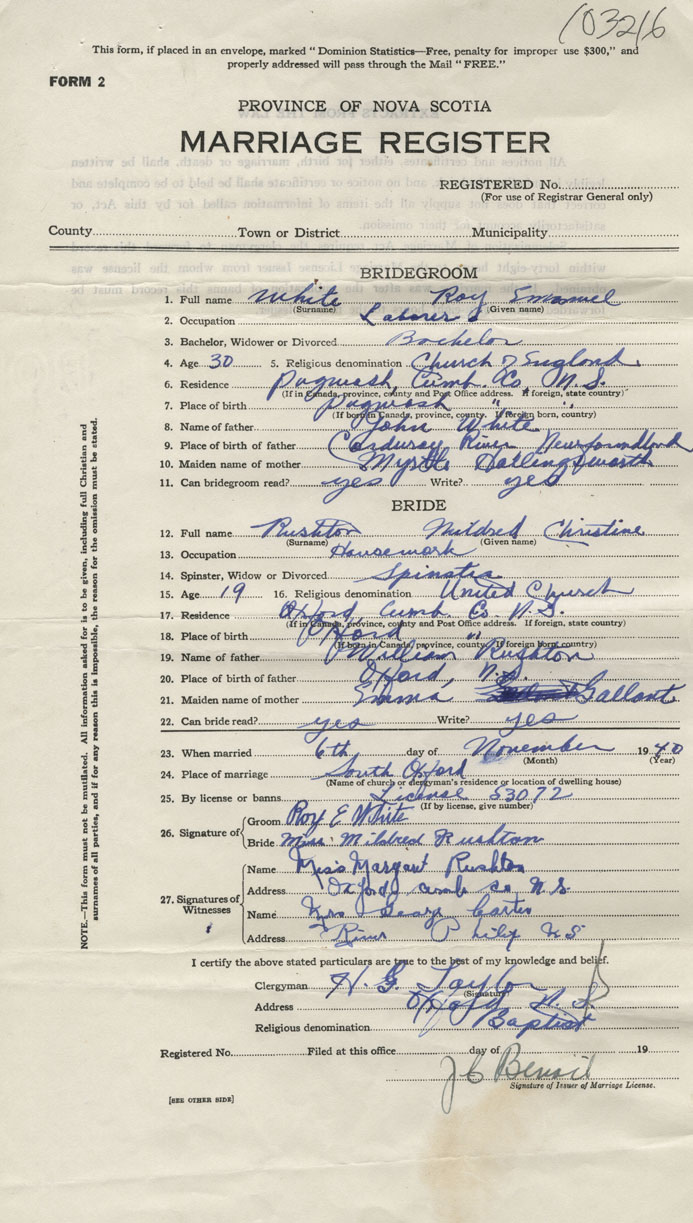 103216
This form, if placed in an envelope, marked "Dominion Statistics—Free, penalty for improper use $300," and
properly addressed will pass through the Mail "FREE."
FORM 2
PROVINCE OF NOVA SCOTIA
MARRIAGE REGISTER
REGISTERED No.
(For use of Registrar General only)
County Town or District Municipality
BRIDEGROOM
1. Full name White Roy Emanuel
(Surname) (Given name)
2. Occupation Laborer
3. Bachelor, Widower or Divorced Bachelor
4. Age 30 5. Religious denomination Church of England
6. Residence Pugwash, Cumb. Co. N.S.
(If in Canada, province, county and Post Office address. If foreign, state country)
7. Place of birth Pugwash " "
(If born in Canada, province, county. If foreign born, country)
8. Name of father John White
9. Place of birth of father Corduroy River Newfoundland
10. Maiden name of mother Myrtle
11. Can bridegroom read? yes Write? yes
BRIDE
12. Full name Rushton Mildred Christine
(Surname) (Given name)
13. Occupation Housework
14. Spinster, Widow or Divorced Spinster
15. Age 19 16. Religious denomination United Church
17. Residence Oxford Cumb Co. N.S.
(If in Canada, province, county and Post Office address. If foreign, state country)
18. Place of birth Oxford "
(If born in Canada, province, county. If foreign born country)
19. Name of father William Rushton
20. Place of birth of father Oxford, N.S.
21. Maiden name of mother Emma Gallant
22. Can bride read? yes Write? yes
23. When married 6th day of November 1940
(Month) (Year)
24. Place of marriage South Oxford
(Name of church or clergyman's residence or location of dwelling house)
25. By license or banns License 53072
(If by license, give number)
26. Signature of
Groom Roy E White
Bride Miss Mildred Rushton
27. Signatures of Witnesses
Name Miss Margaret Rushton
Address Oxford Cumb Co N.S.
Name Mrs George Carter
Address River Philip N S
I certify the above stated particulars are true to the best of my knowledge and belief.
Clergyman H. G. Taylor
(Signature)
Address Oxford N.S.
Religious denomination Baptist
Registered No. Filed at this office day of 19
J C Benoit
Signature of Issuer of Marriage License.
[SEE OTHER SIDE]
NOTE.—This form must not be mutilated. All information asked for is to be given, including full Christian and
surnames of all parties, and if for any reason this is impossible, the reason for the omission must be stated.